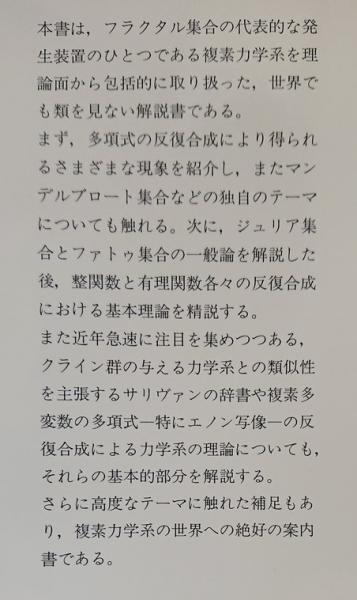 本書は，フラクタル集合の代表的な発
生装置のひとつである複素力学系を理
論面から包括的に取り扱った，世界で
も類を見ない解説書である。
まず，多項式の反復合成により得られ
るさまざまな現象を紹介し，またマン
デルブロート集合などの独自のテーマ
についても触れる。次に，ジュリア集
合とファトゥ集合の一般論を解説した
後，整関数と有理関数各々の反復合成
における基本理論を精説する。
また近年急速に注目を集めつつある，
クライン群の与える力学系との類似性
を主張するサリヴァンの辞書や複素多
変数の多項式—特にエノン写像—の反
復合成による力学系の理論についても，
それらの基本的部分を解説する。
さらに高度なテーマに触れた補足もあ
り，複素力学系の世界への絶好の案内
書である。